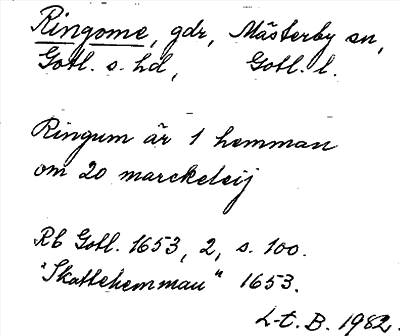 Ringome, gdr, Mästerby sn,
Gotl. s. hd, Gotl. l.
Ringum är 1 hemman
om 20 marckeleij
Rb Gotl. 1653, 2, s. 100.
"Skattehemman" 1653.
L-t. B. 1982.